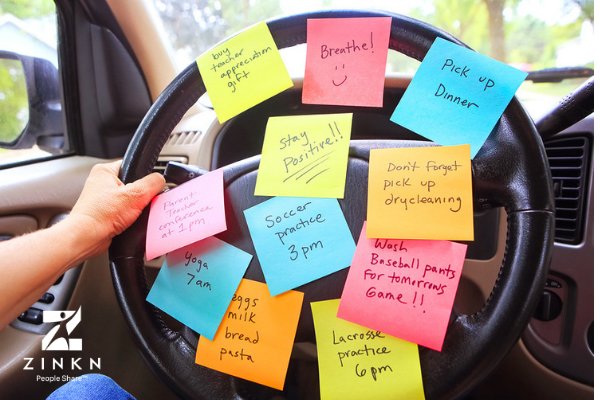 buy
teacher
appreciation
gift
Breathe!
Pick up
Dinner
Stay
Positive!!
Don't forget
pick up
drycleaning
Parent
Teacher
conference
at 1pm
Soccer
practice
3 pm
Wash
Baseball pants
for tomorrows
Game!!
Yoga
7am
eggs
milk
bread
pasta
Lacrosse
practice
6pm
ZINKN
People Share™